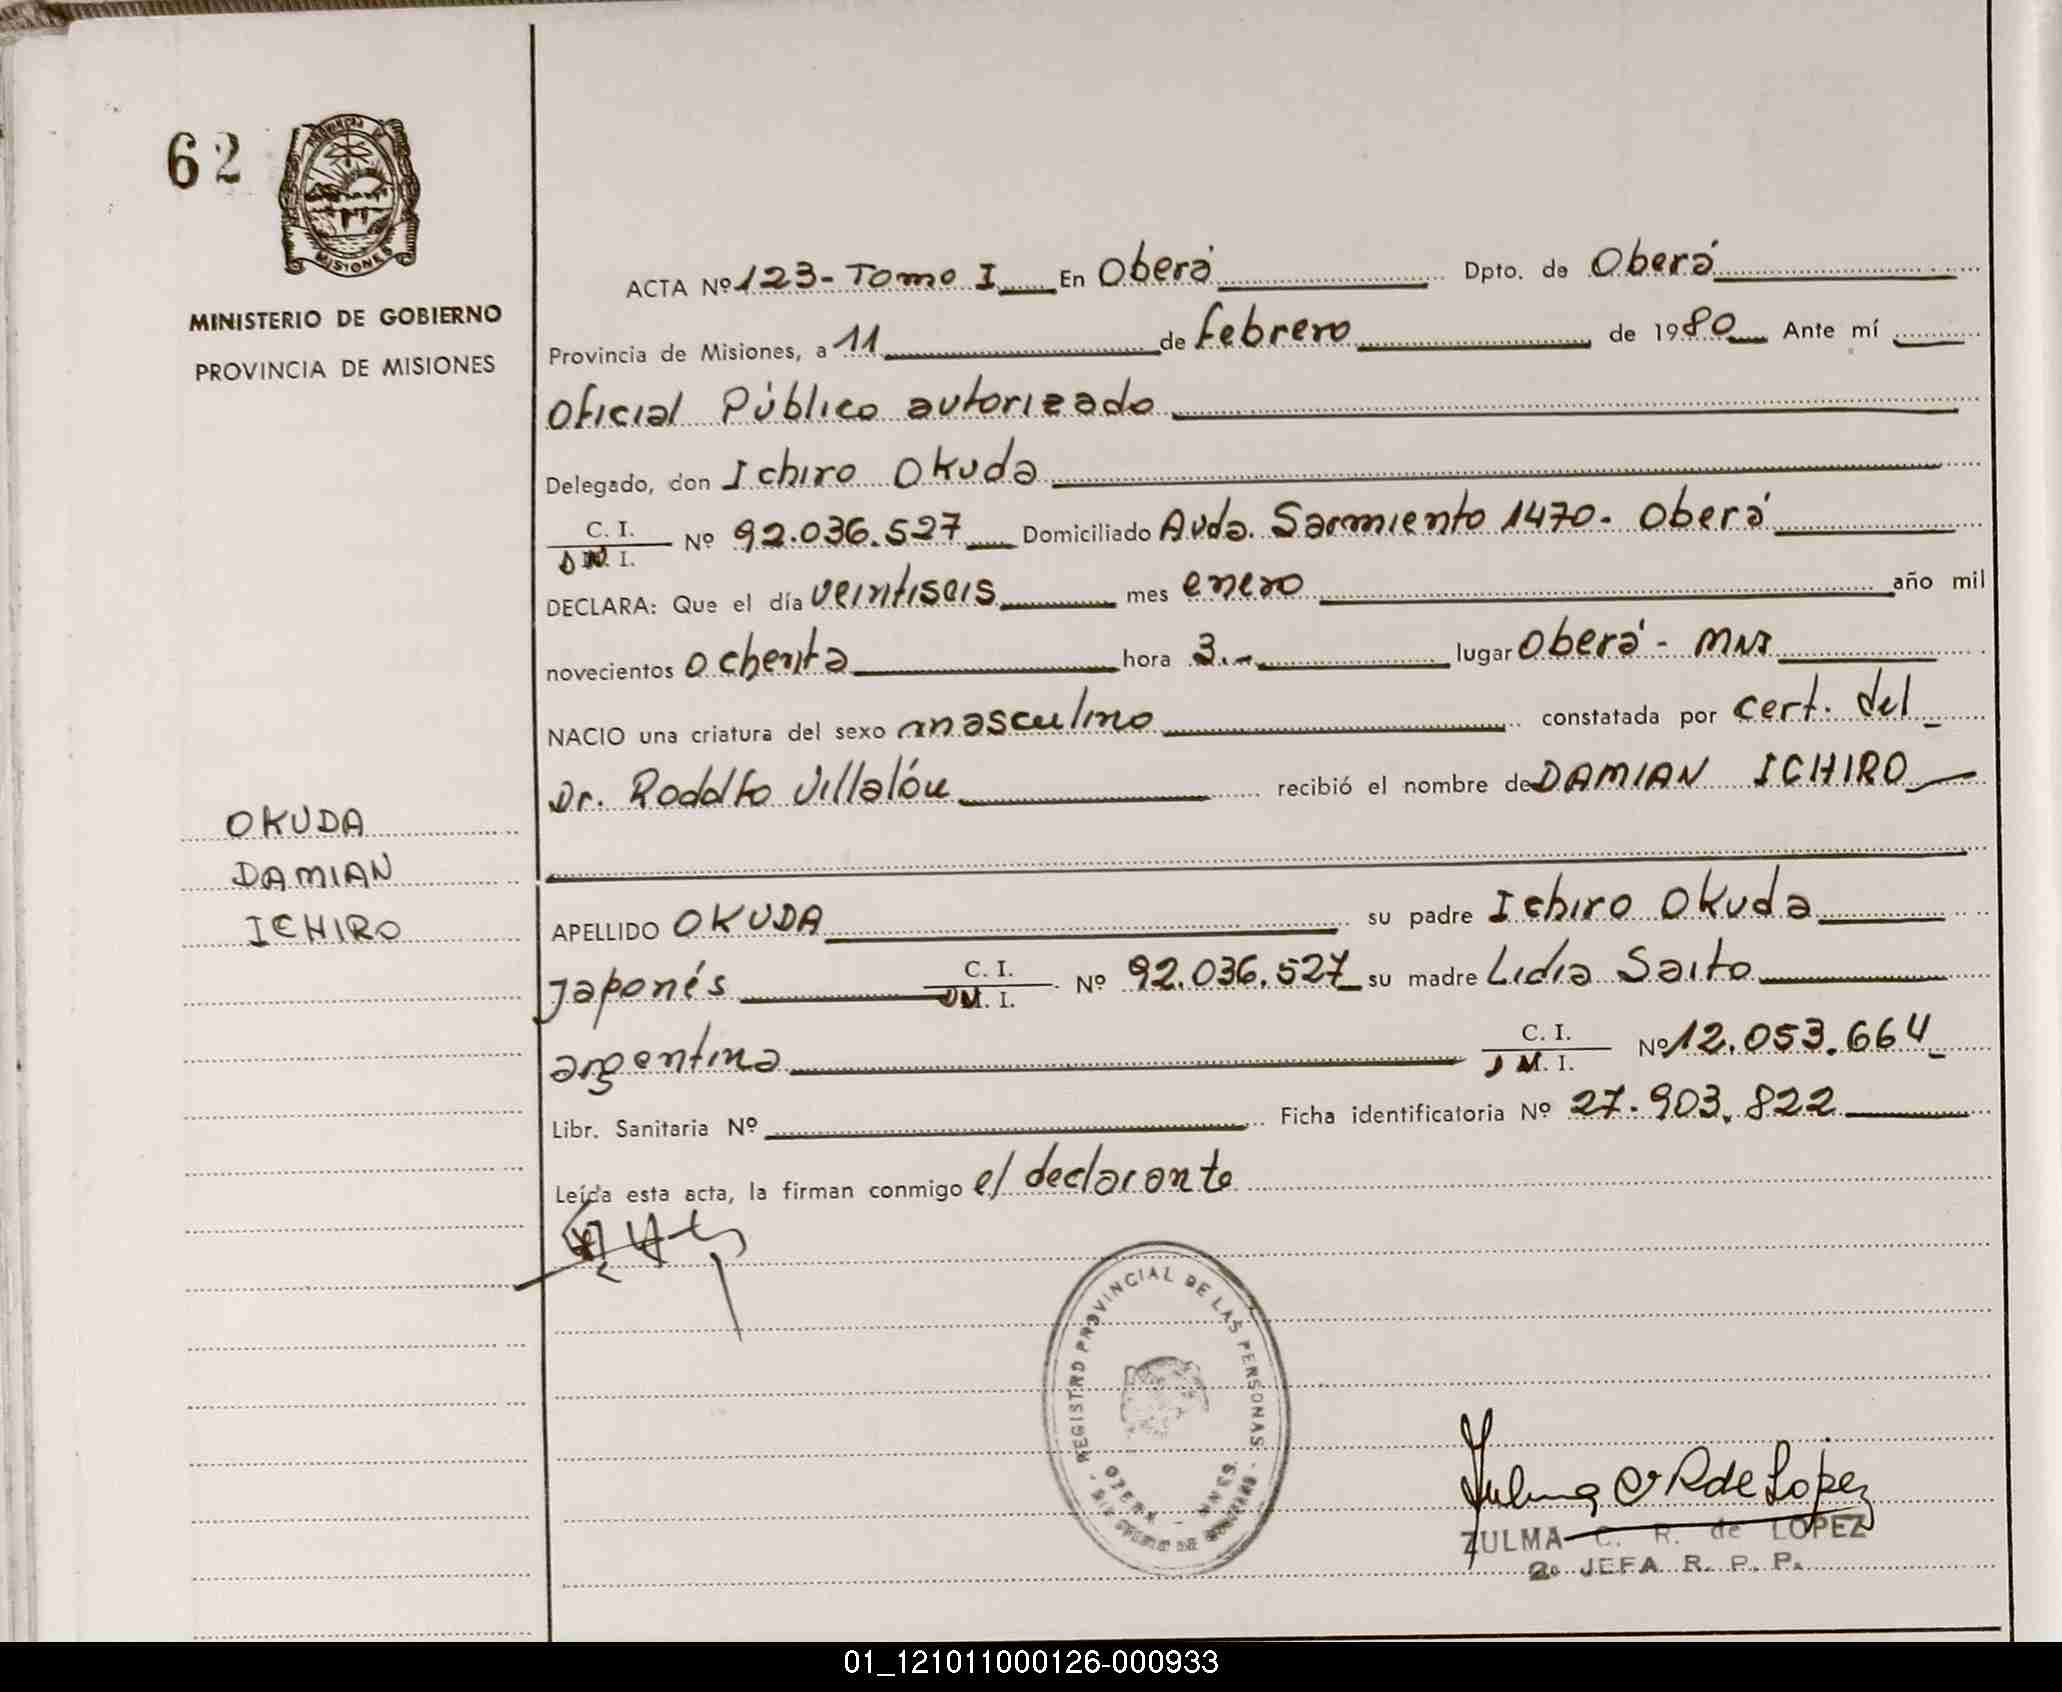 62
PROVINCIA DE
MISIONES
MINISTERIO DE GOBIERNO
PROVINCIA DE MISIONES
OKUDA
DAMIAN
ICHIRO
ACTA Nº 123 - Tomo I En Oberá Dpto. de Oberá
Provincia de Misiones, a 11 de febrero de 1980 Ante mí
Oficial Público autorizado
Delegado, don Ichiro Okuda
C. I.
D N. I. Nº 92.036.527 Domiciliado Avda. Sarmiento 1470 - Oberá
DECLARA: Que el día veintiseis mes enero año mil
novecientos ochenta hora 3.- lugar Oberá - Mns
NACIO una criatura del sexo masculino constatada por cert. del
Dr. Rodolfo Villalón recibió el nombre de DAMIAN ICHIRO
APELLIDO OKUDA su padre Ichiro Okuda
japonés C. I. DM. I. Nº 92.036.527 su madre Lidia Saito
argentina C. I. M. I. Nº 12.053.664
Libr. Sanitaria Nº Ficha identificatoria Nº 27.903.822
Leída esta acta, la firman conmigo el declarante
REGISTRO PROVINCIAL DE LAS PERSONAS
OBERA - MNES.
Zulma C R de López
ZULMA C. R. de LOPEZ
2º JEFA R. P. P.
01_121011000126-000933